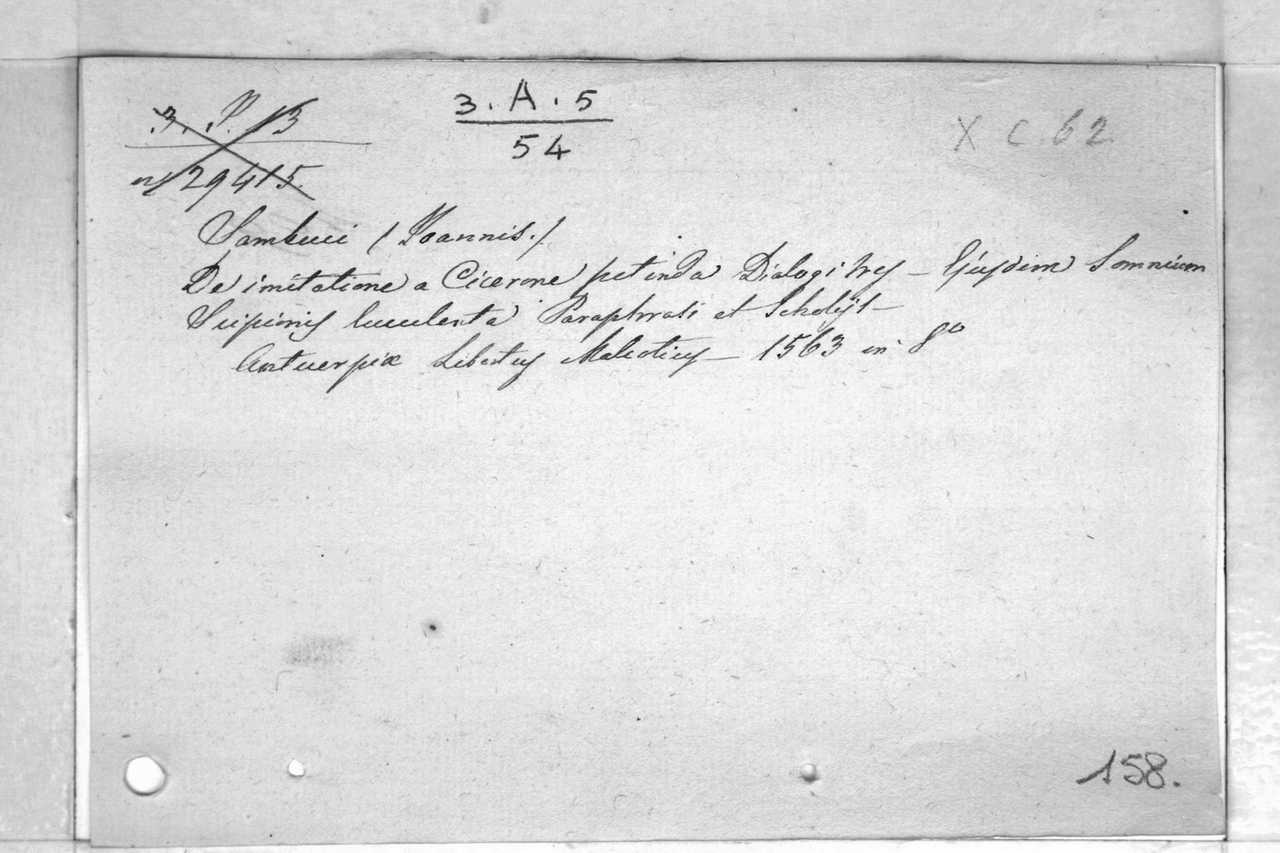 3. P. 13
3.A.5
X C.62.
54
n° 29415.
Sambuci (Joannis.)
De imitatione a Cicerone petenda Dialogi tres – Ejusdem Somnium
Scipionis luculenta Paraphrasi et Scholijs –
Antverpiæ Libertus Malcotius – 1563 in 8°
158.